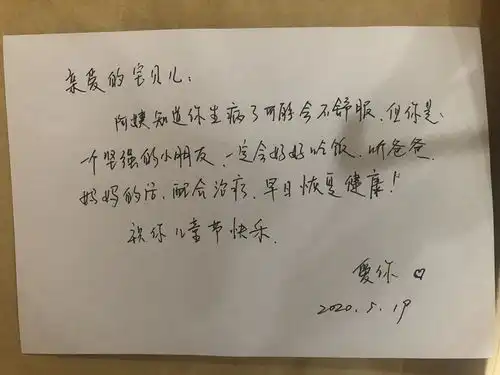 亲爱的宝贝儿:
阿姨知道你生病了可能会不舒服,但你是
一个坚强的小朋友,一定会好好吃饭,听爸爸、
妈妈的话,配合治疗,早日恢复健康!
祝你儿童节快乐.
爱你 ♡
2020.5.19